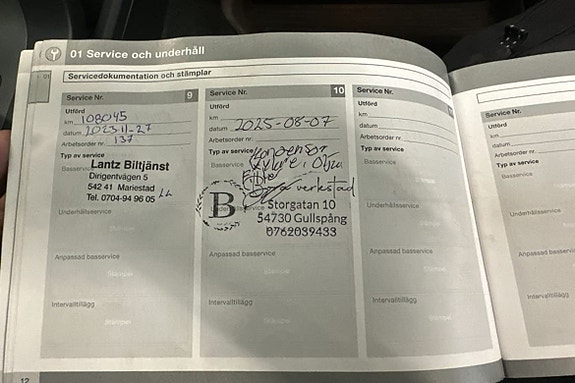 01 Service och underhåll
Servicedokumentation och stämplar
Service Nr. 9
Utförd
km 108045
datum 2023 11-27
Arbetsorder nr. 137
Typ av service
Basservice
Lantz Biltjänst
Dirigentvägen 5
542 41 Mariestad
Tel. 0704-94 96 05
Underhållsservice
Stämpel
Anpassad basservice
Stämpel
Intervalltillägg
Stämpel
Service Nr. 10
Utförd
km
datum 2025-08-07
Arbetsorder nr.
Typ av service
Basservice
Olja
Filter
verkstad
B
Storgatan 10
54730 Gullspång
0762039433
Underhållsservice
Anpassad basservice
Stämpel
Intervalltillägg
Stämpel
Service Nr.
Utförd
km
datum
Arbetsorder nr.
Typ av service
Basservice
Underhållsservice
Anpassad basservice
Intervalltillägg
Service Nr.
Utförd
km
datum
Arbetsorder nr.
Typ av service
Basservice
Underhållsservice
Anpassad basservice
Intervalltillägg
12